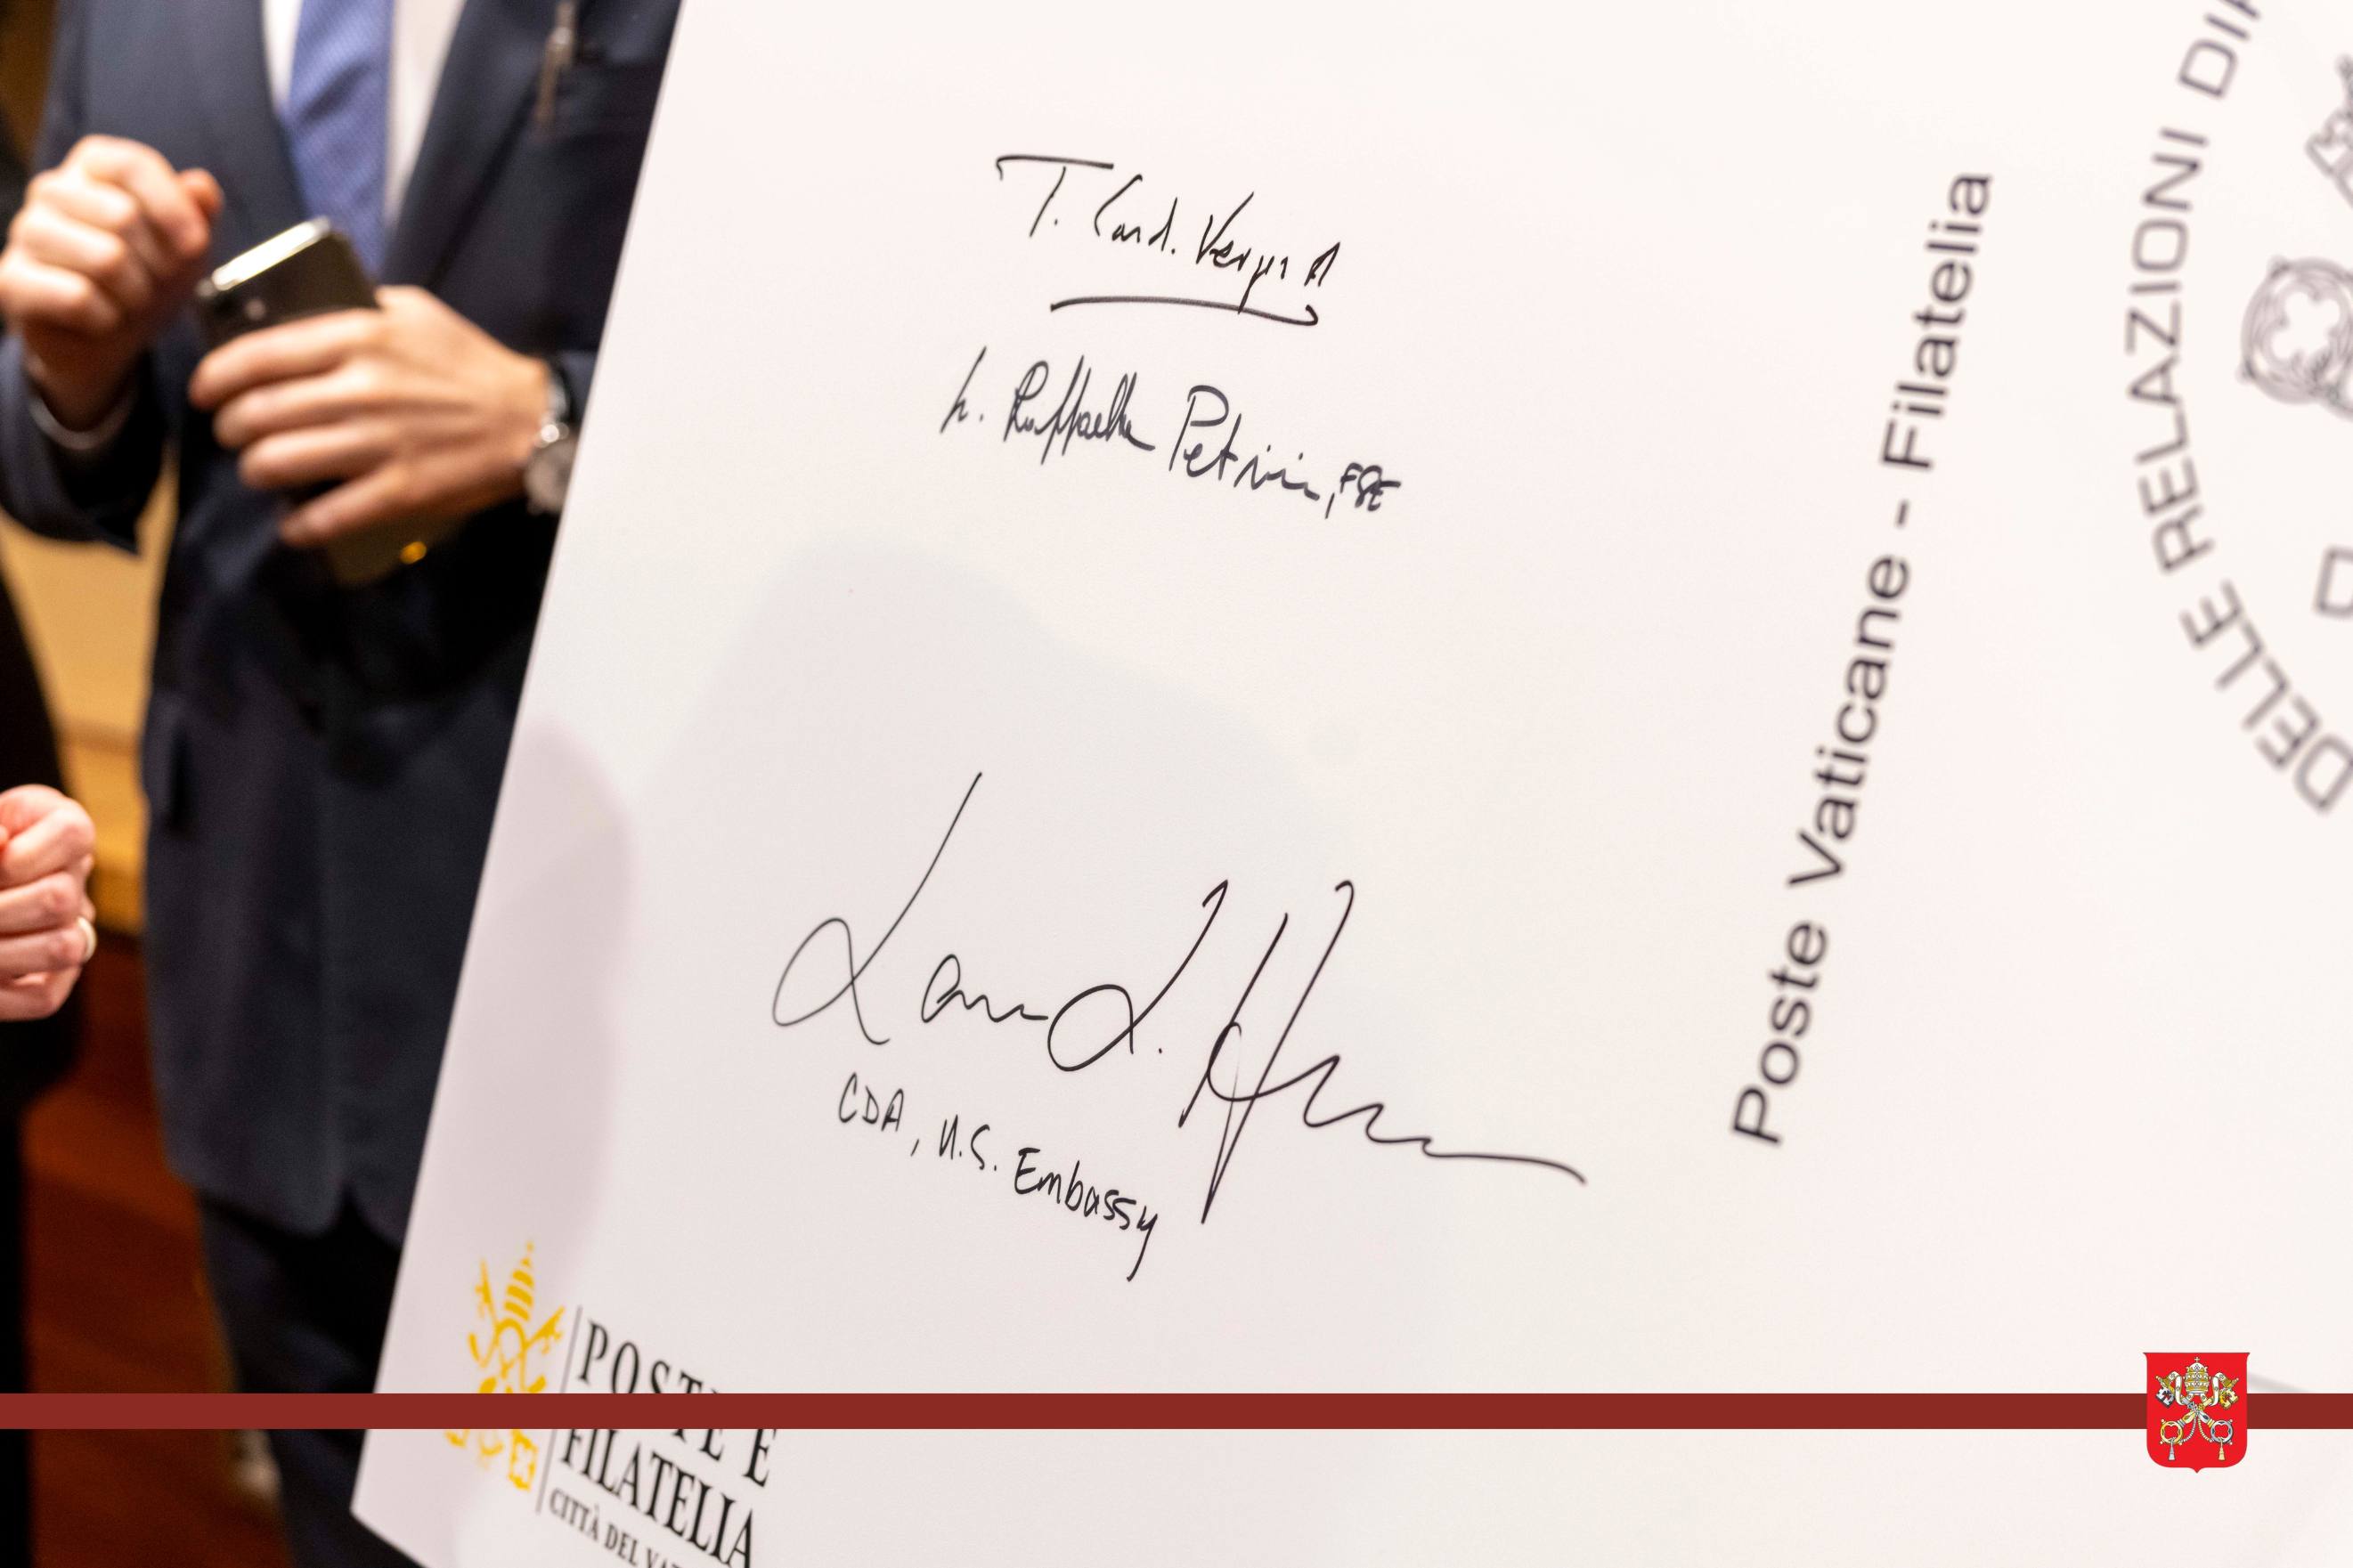 F. Card. Vérgez A
Sr. Raffaella Petrini, FSE
Laura
CDA, U.S. Embassy
Poste Vaticane - Filatelia
DELLE RELAZIONI
POSTE E
FILATELIA
CITTÀ DEL